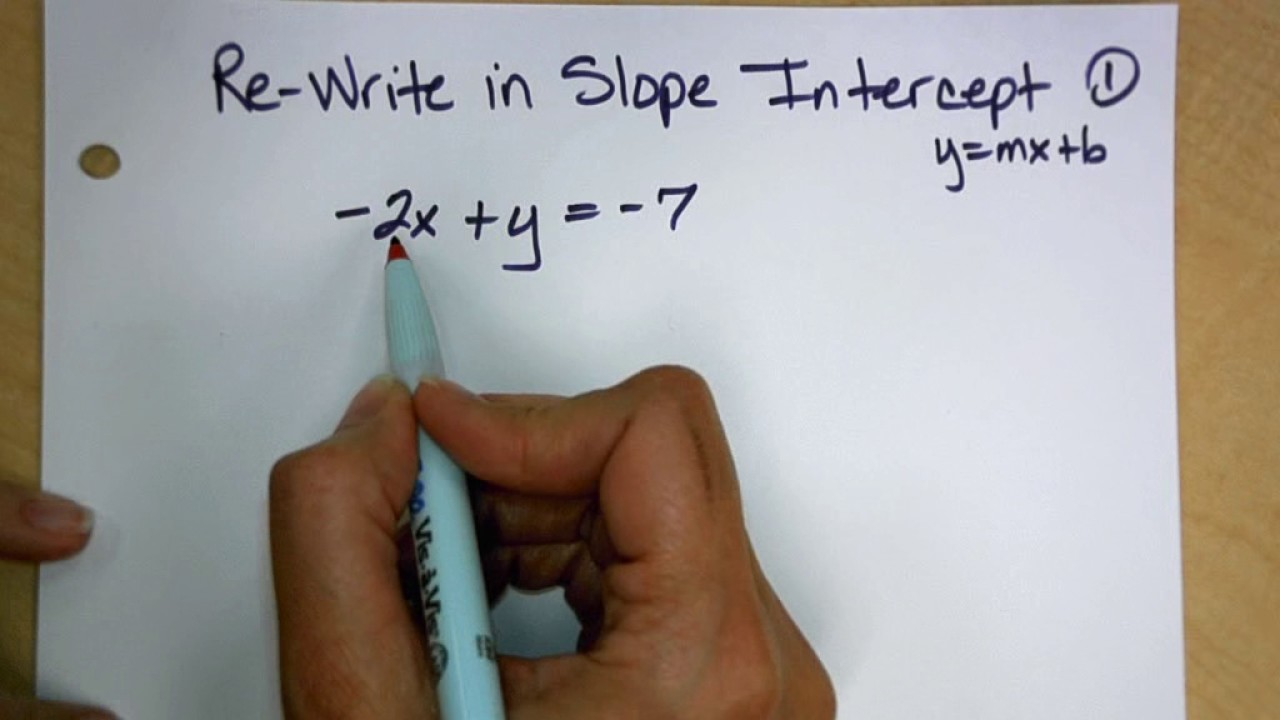 Re-Write in Slope Intercept ①
y=mx+b
-2x + y = -7
Vis-à-Vis